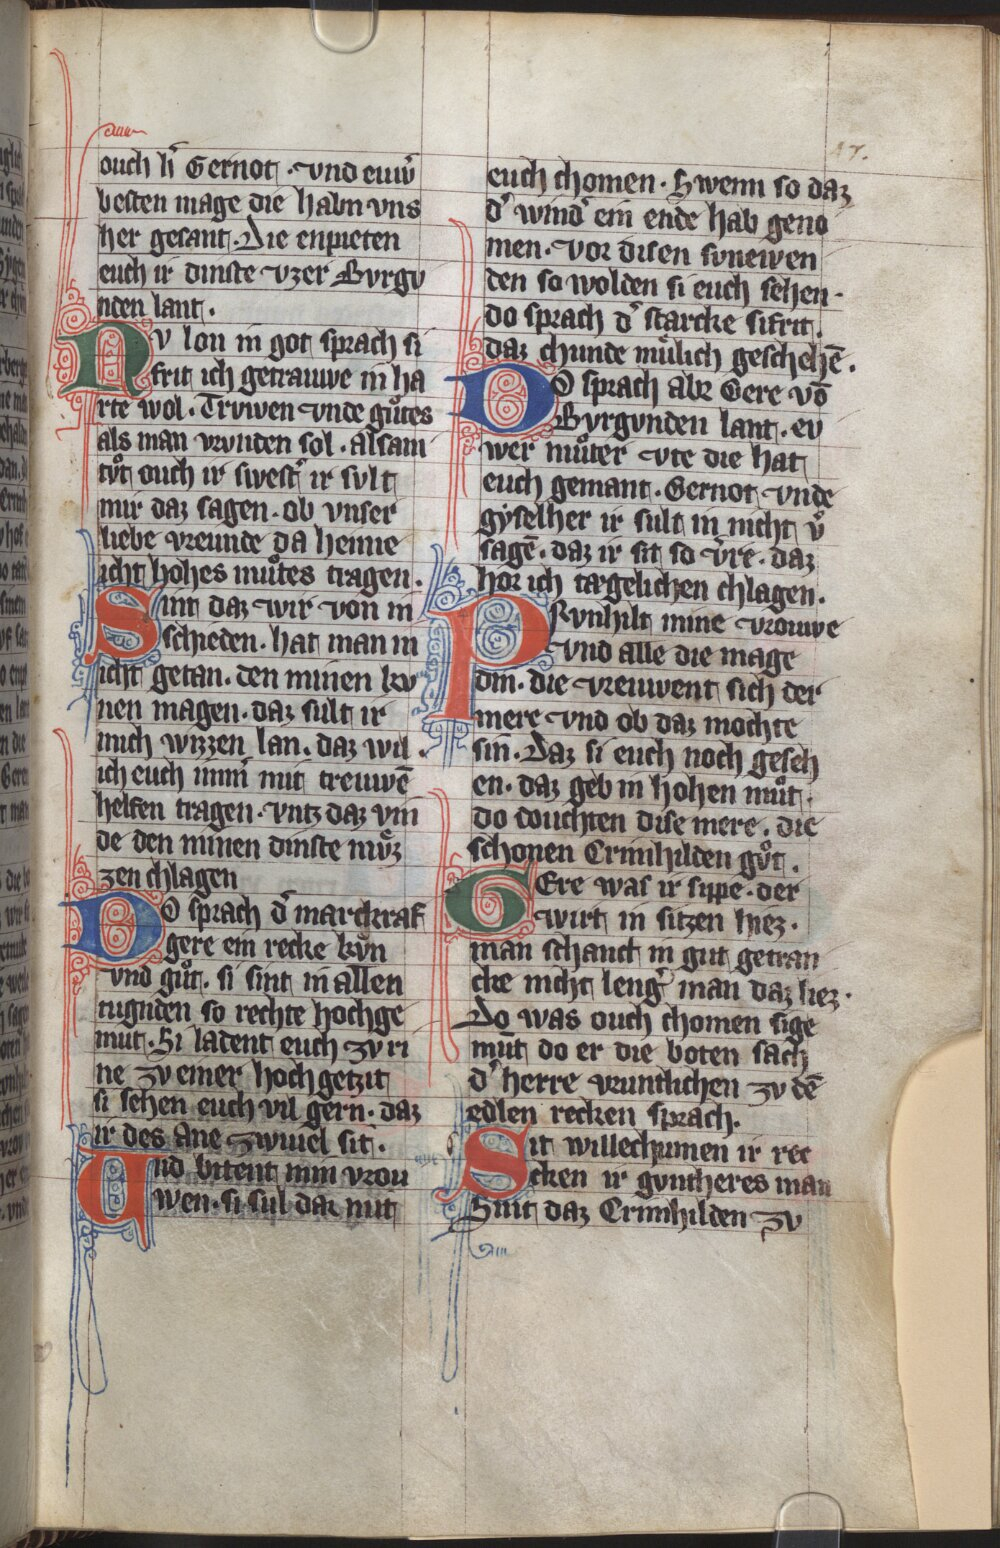 17.
ouch h̾ Gernot · vnd euw̾
besten mage die habn vns
her gesant · Die enpieten
euch ir dinste vzer Bvrgv
nden lant ·
Nv lon in got sprach si
frit ich getrauwe in ha
rte wol · Trvwen vnde gůtes
als man vrvnden sol · alsam
tůt ouch ir swest̾ ir svlt
mir daz sagen · ob vnser
liebe vreunde da heime
icht hohes můtes tragen ·
Sint daz wir von in
schieden · hat man in
icht getan · den minen kv
nen magen · daz sult ir
mich wizzen lan · daz wil
ich euch imm̾ mit treuwē
helfen tragen · vntz daz vin
de den minen dinste můz
zen chlagen
Do sprach d̾ marckraf
gere ein recke kůn
vnd gůt · si sint in allen
tugnden so rechte hochge
mut · Si ladent euch zv ri
ne zv einer hochgetzit
si sehen euch vil gern · daz
ir des ane zwiuel sit ·
Und bitent min vrou
wen · si sul dar mit
euch chomen · Swenn so daz
d̾ wind̾ ein ende hab geno
men · vor disen svnewen
den so wolden si euch sehen ·
do sprach d̾ starcke sifrit ·
daz chunde můlich geschehē ·
Do sprach abr Gere vō
Bvrgvnden lant · ev
wer můter vte die hat
euch gemant · Gernot vnde
gẏselher ir sult in nicht v̊
sagē · daz ir sit so v̾re · daz
hor ich tægelichen chlagen ·
Prvnhilt mine vrouwe
vnd alle die mage
din · die vreuwent sich der
mere vnd ob daz mochte
sin · Daz si euch noch gesch
en · daz geb in hohen můt ·
do douchten dise mere · die
schonen Crimhilden gůt ·
Gere was ir sippe · der
wirt in sitzen hiez ·
man schanct in gut getran
cke nicht leng̾ man daz liez ·
Do was ouch chomen sige
mūt do er die boten sach
d̾ herre vruntlichen zv dē
edlen recken sprach ·
Sit willechumen ir rec
cken ir gvntheres man
Sint daz Crimhilden zv